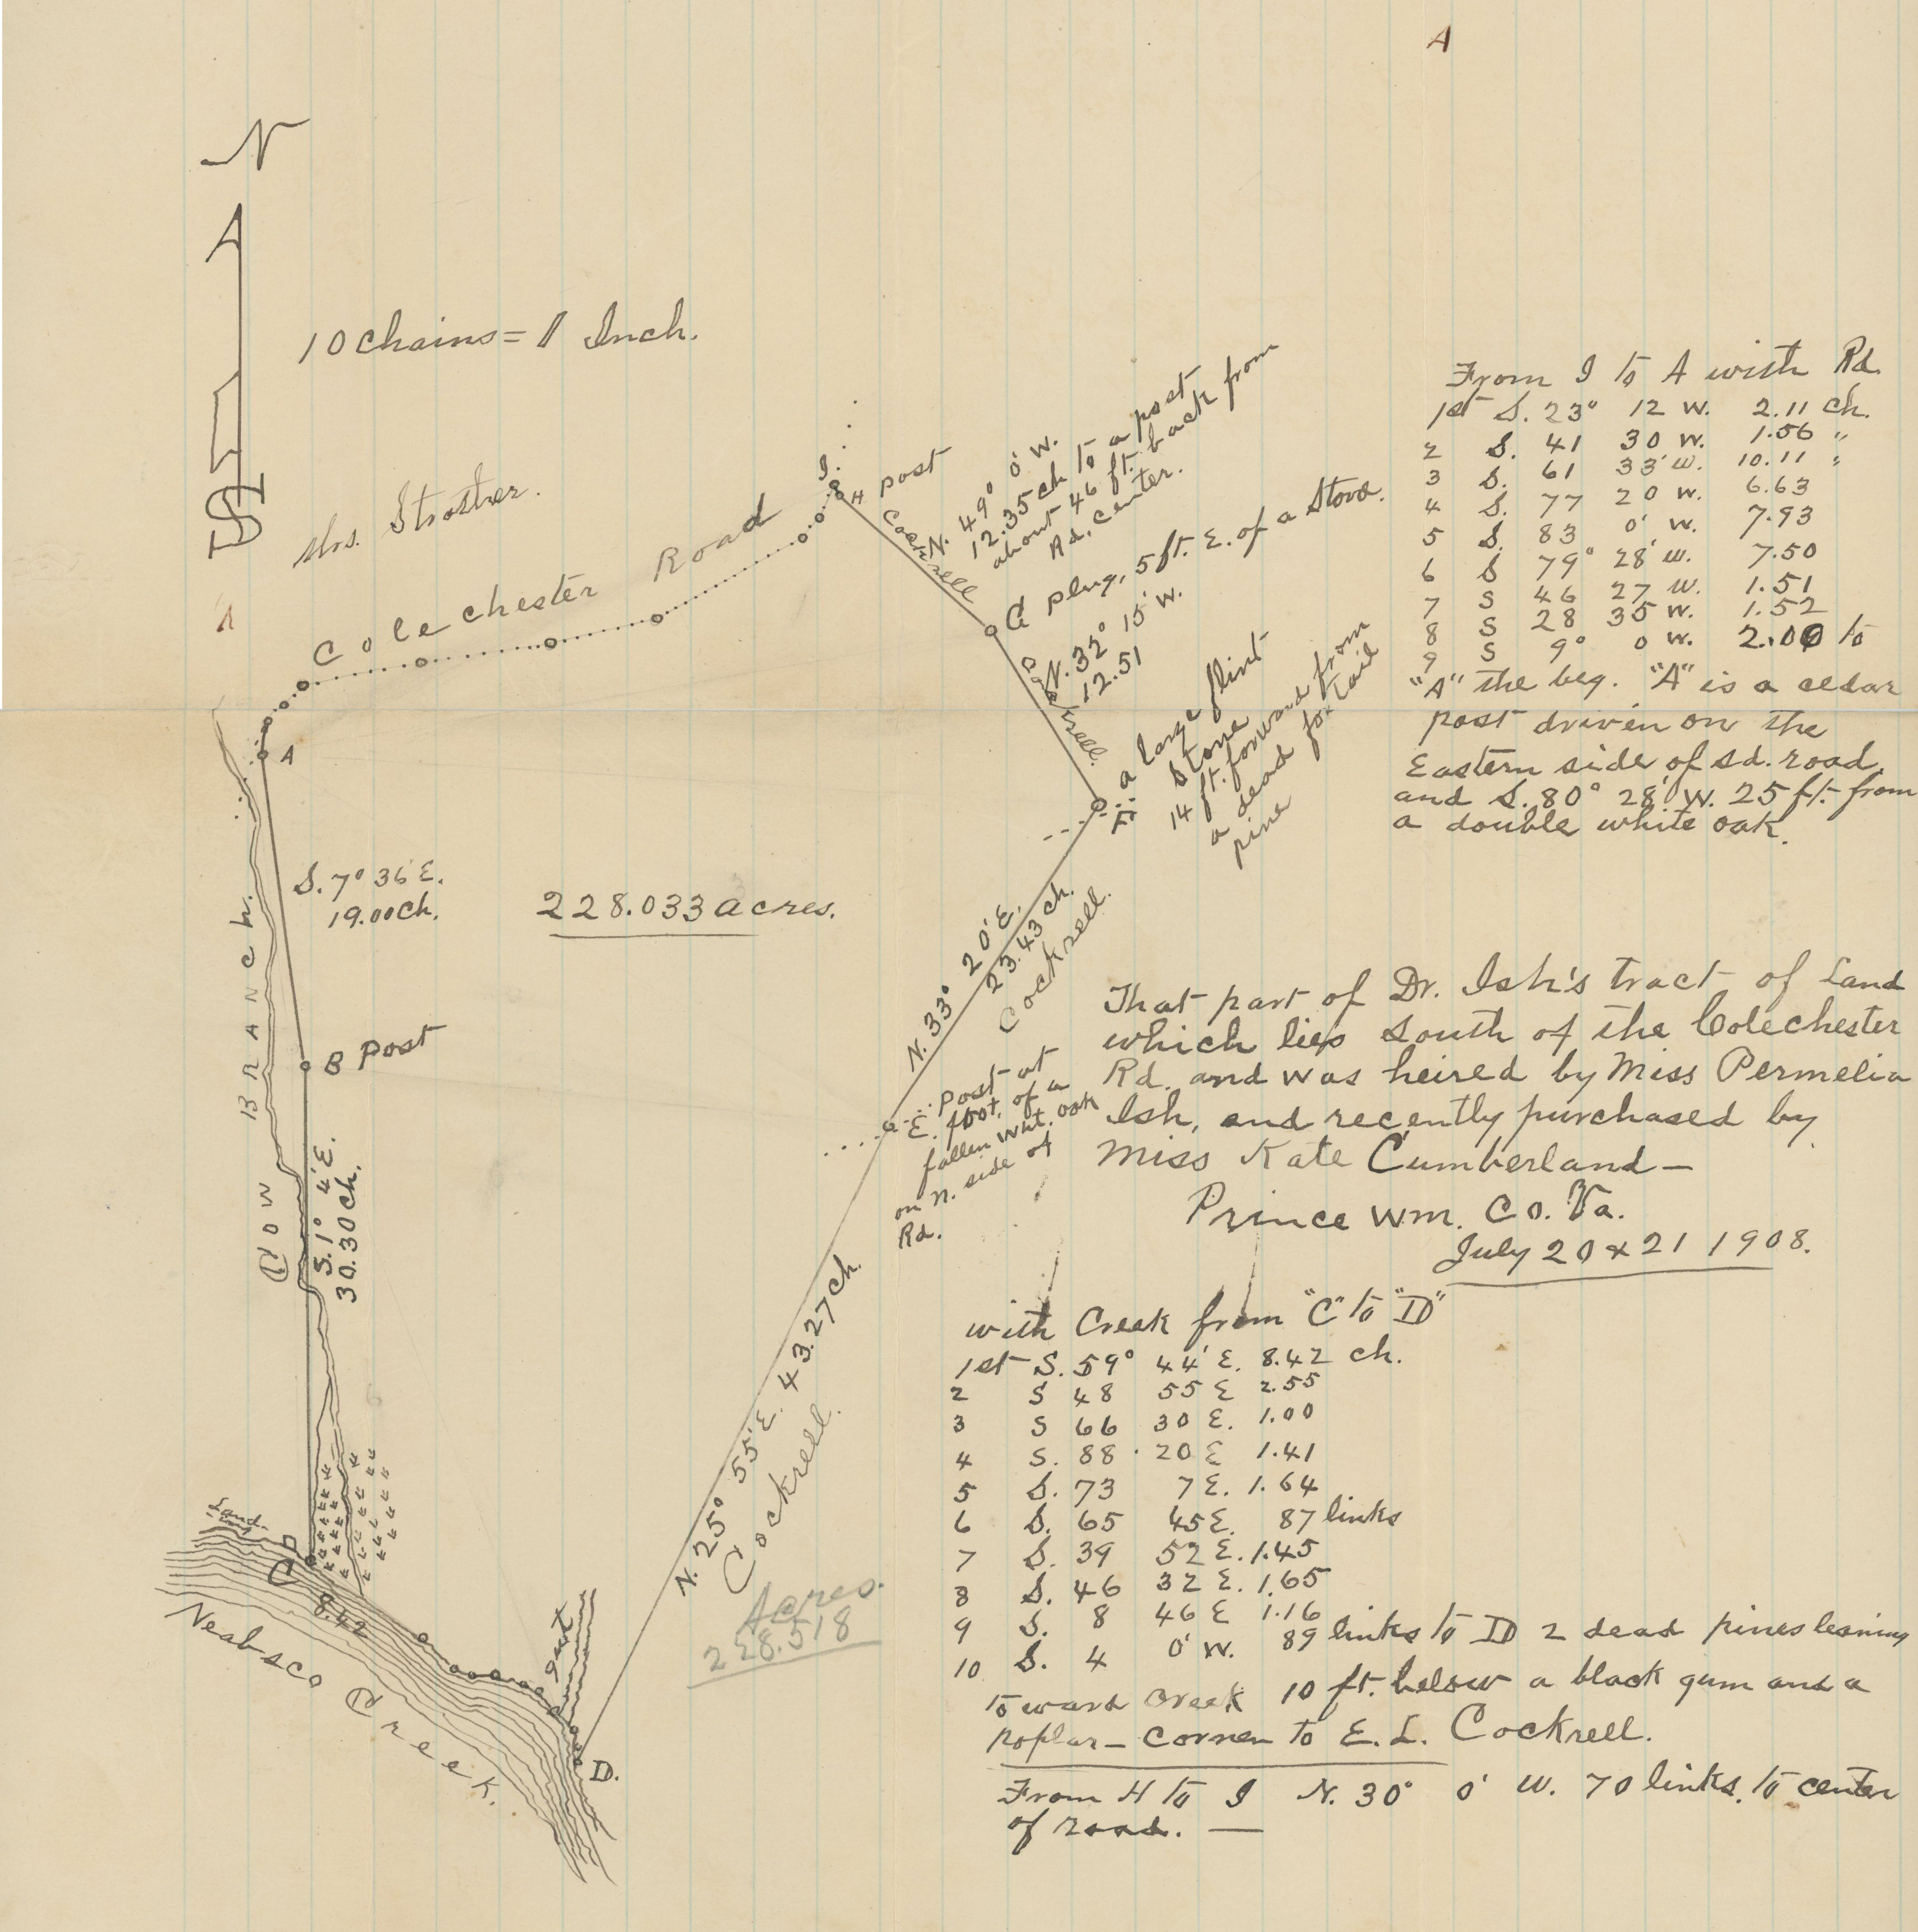 A
N
10 chains = 1 Inch.
S
Mrs. Strother.
A
Colechester Road
I.
H post
Cockrell
N. 49° 0' W.
12.35 ch to a post
about 46 ft. back from
Rd. center.
G plug, 5 ft. E. of a Stone.
N. 32° 15' W.
12.51
Cockrell.
F
a large flint
stone
14 ft. forward from
a dead fox tail
pine
A
S. 7° 36' E.
19.00 Ch.
228.033 acres.
B post
N. 33° 20' E.
23.43 ch.
Cockrell.
E. post at
foot of a
fallen wht. oak
on n. side of
Rd.
Cow BRANCH.
S. 1° 4' E.
30.30 Ch.
N. 25° 55' E. 43.27 ch.
Cockrell.
Acres.
228.518
Landing
C
8.42
Neabsco Creek.
gut
D.
From I to A with Rd.
1st S. 23° 12 W. 2.11 ch.
2 S. 41 30 W. 1.56 "
3 S. 61 33' W. 10.11 "
4 S. 77 20 W. 6.63
5 S. 83 0' W. 7.93
6 S 79° 28' W. 7.50
7 S 46 27 W. 1.51
8 S 28 35 W. 1.52
9 S 9° 0 W. 2.00 to
"A" the beg. "A" is a cedar
post driven on the
Eastern side of sd. road,
and S. 80° 28' W. 25 ft. from
a double white oak.
That part of Dr. Ish's tract of Land
which lies South of the Colechester
Rd. and was heired by Miss Permelia
Ish, and recently purchased by
Miss Kate Cumberland —
Prince Wm. Co. Va.
July 20 & 21 1908.
with Creek from "C" to "D"
1st S. 59° 44' E. 8.42 ch.
2 S 48 55 E 2.55
3 S 66 30 E. 1.00
4 S. 88 20 E 1.41
5 S. 73 7 E. 1.64
6 S. 65 45 E. 87 links
7 S. 39 52 E. 1.45
8 S. 46 32 E. 1.65
9 S. 8 46 E 1.16
10 S. 4 0' W. 89 links to D 2 dead pines leaning
toward creek 10 ft. below a black gum and a
poplar — corner to E. L. Cockrell.
From H to I N. 30° 0' W. 70 links, to center
of road. —